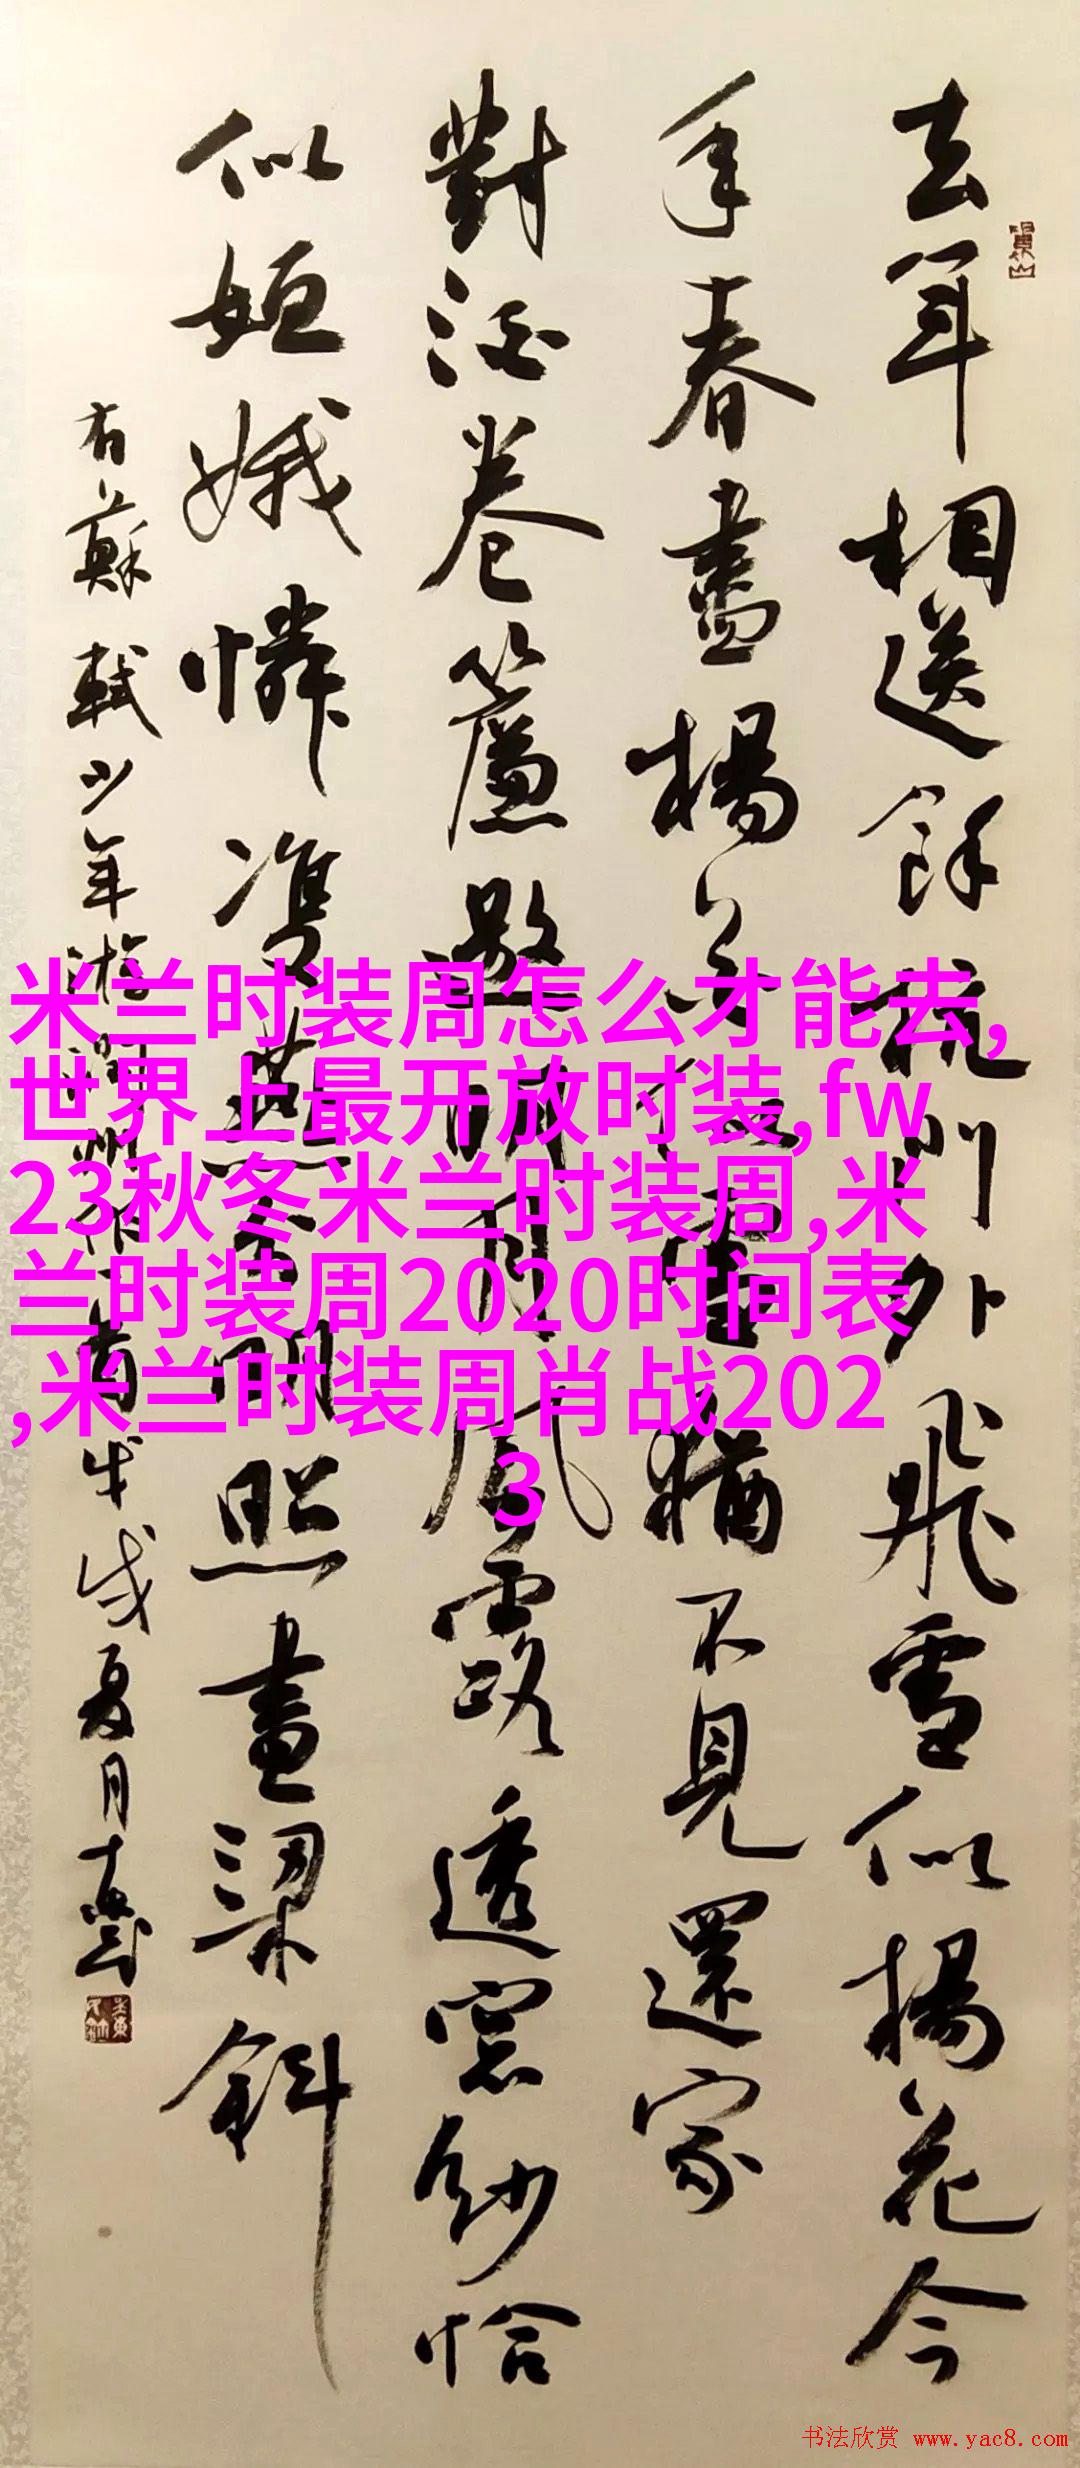 去年相送餘杭門外飛雪似楊花今
年春盡楊花似雪猶不見還家
對酒卷簾邀明月風露透窗紗恰
似姮娥憐雙燕分明照畫梁斜
右蘇軾少年游潤州作一首戊戌夏月
米兰时装周怎么才能去,
世界上最开放时装,fw
23秋冬米兰时装周,米
兰时装周2020时间表
,米兰时装周肖战202
3
书法欣赏 www.yac8.com